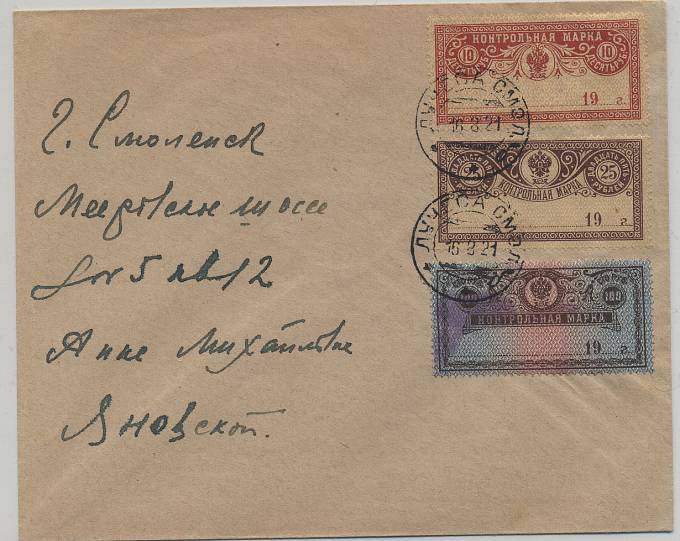 г. Смоленск
шоссе
5 кв 12
Анне Михайловне
Яновской.
10 КОНТРОЛЬНАЯ МАРКА 10
ДЕСЯТЬ РУБ. ДЕСЯТЬ РУБ.
19 г.
ЛУЧЕСА СМОЛ.
16 8 21
25
ДВАДЦАТЬ ПЯТЬ РУБЛЕЙ
КОНТРОЛЬНАЯ МАРКА
19 г.
ЛУЧЕСА СМОЛ.
16 8 21
100 100
КОНТРОЛЬНАЯ МАРКА
19 г.